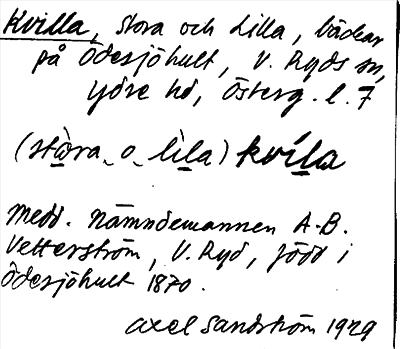 Kvilla, Stora och Lilla, bäckar
på Ödesjöhult, V. Ryds sn,
Ydre hd, Österg. l. 7
(stòra_ o_ lìla) kvíla
Medd. Nämndemannen A.B.
Vetterström, V. Ryd, född i
Ödesjöhult 1870.
Axel Sandström 1929